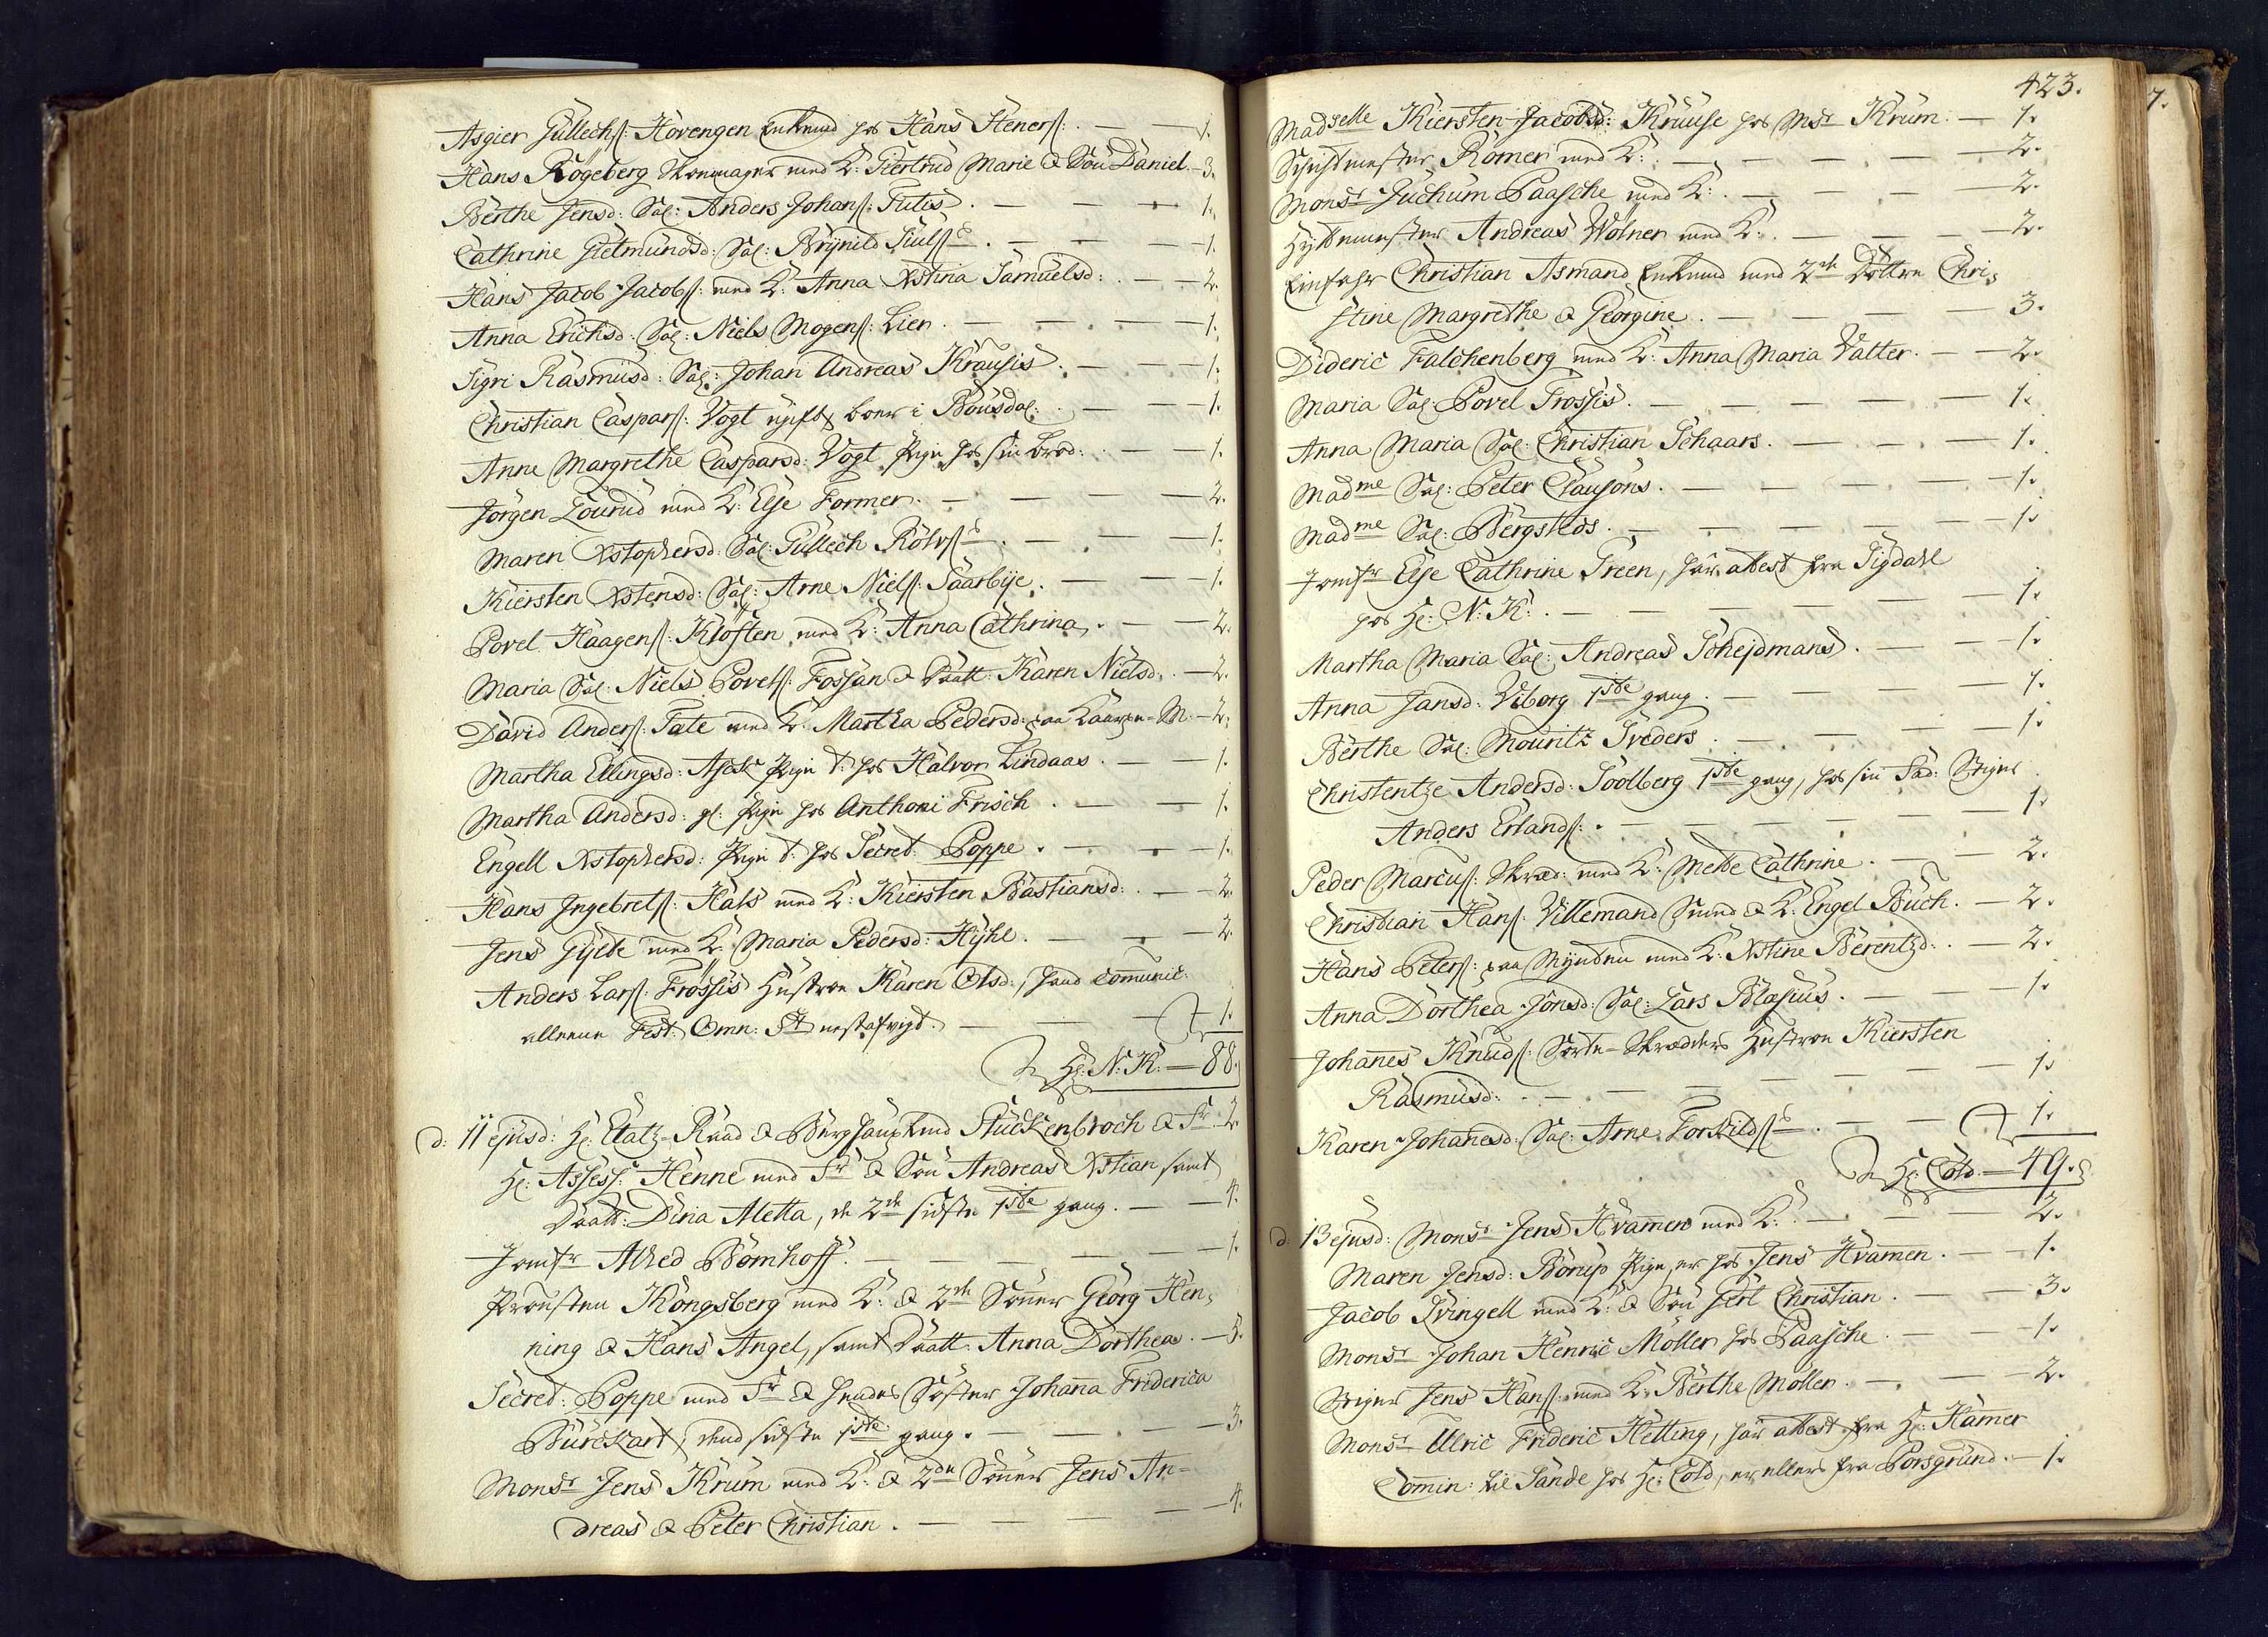 Asgier Gullechs: Hovengen Enkmd hos Hans Steners: . — — 1.
Hans Rögeberg Skomager med K: Giertrud Marie & Sön Daniel. — 3.
Berthe Jensd: Sal: Anders Johans: Tutis . — — 1.
Cathrine Gietmundsd: Sal: Brÿnild Siuls: . — — 1.
Hans Jacob Jacobs: med K: Anna Xstina Samuelsd: . — — 2.
Anna Erichsd: Sal: Niels Mogens: Lien . — — — 1.
Sigri Rasmusd: Sal: Johan Andreas Krausis . — — 1.
Christian Caspars: Vogt ugift, boer i Bousdal: . — — 1.
Anne Margrethe Casparsd: Vogt Pige hos sin Brod: . — — 1.
Jörgen Lourud med K: Else Former . — — — 2.
Maren Xstophersd: Sal: Gullech Rolvs: . — — 1.
Kiersten Xstensd: Sal: Arne Niels: Saarbÿe . — — 1.
Povel Haagens: Klöften med K: Anna Cathrina . — — 2.
Maria Sal: Niels Povels: Fossan & Daatt: Karen Nielsd: . — 2.
David Anders: Tate med K: Martha Pedersd: paa — M: — 2.
Martha Ellingsd: Pige t: hos Halvor Lindaas . — — 1.
Martha Andersd: gl: Pige hos Anthoni Frisch . — — 1.
Engell Xstophersd: Pige t: hos Secret: Poppe . — — 1.
Hans Ingebrets: Hals med K: Kiersten Bastiansd: . — — 2.
Jens Gÿlte med K: Maria Pedersd: Hÿhl . — — — 2.
Anders Lars: Frössis Hustroe Karen Olsd:, hand comunic:
alleene Fest: Omn: St: nestafvigt . — — — 1.
Hr: N: K: — 88.
d: 11 ejusd: Hr: Etatz-Raad & Berghauptmd Stuckenbroch & Fr: 2.
Hr: Assess: Henne med Fr: & Sön Andreas Xstian samt
Daatt: Dina Aletta, de 2de sidste 1ste gang . — — 4.
Jomfr Alhed Bomhoff . — — — 1.
Provsten Kongsberg med K: & 2de Sönner Georg Hen-
ning & Hans Angel, samt Daatt: Anna Dorthea . — 5.
Secret: Poppe med Fr: & hendes Söster Johanna Friderica
Burckart, dend sidste 1ste gang . — — — 3.
Monsr Jens Krum med K: & 2de Sönner Jens An-
dreas & Peter Christian . — — — 4.
423.
Madselle Kiersten Jacobsd: Kruuse hos Msr Krum . — 1.
Schichtmester Römer med K: . — — — 2.
Monsr Juchum Paasche med K: . — — — 2.
Hÿttemester Andreas Wölner med K: . — — — 2.
Einfahr Christian Asmand Enkmd med 2de Döttre Chri-
stine Margrethe & Georgine . — — — 3.
Dideric Falchenberg med K: Anna Maria Vatter . — — 2.
Maria Sal: Povel Frossis . — — — 1.
Anna Maria Sal: Christian Schaars . — — — 1.
Madme Sal: Peter Clausöns . — — — 1.
Madme Sal: Bergsteds . — — — 1.
Jomfr Else Cathrine Green, har attest fra Sigdahl
hos Hr: N: K: . — — — 1.
Martha Maria Sal: Andreas Schejdmans . — — 1.
Anna Jansd: Viborg 1ste gang . — — — 1.
Berthe Sal: Mouritz Sveders . — — — 1.
Christentze Andersd: Soolberg 1ste gang, hos sin Fad: Stiger
Anders Erlands: . — — — 1.
Peder Marcus: Skræd: med K: Mette Cathrine . — — 2.
Christian Hans: Villemand Smed & K: Engel Buch . — 2.
Hans Peters: paa Mÿnten med K: Xstine Berentzd: . — 2.
Anna Dorthea Jonsd: Sal: Lars Blasius . — — 1.
Johannes Knuds: Sorte-Skrædders Hustroe Kiersten
Rasmusd: . — — — 1.
Karen Johanesd: Sal: Arne Torkilds: . — — 1.
Hr: Cold — 49.
d: 13 ejusd: Monsr Jens Hvamen med K: . — — 2.
Maren Jensd: Borup Pige, er hos Jens Hvamen . — — 1.
Jacob Svingell med K: & Sön Gert Christian . — — 3.
Monsr Johan Henric Möller hos Paasche . — — 1.
Stiger Jens Hans: med K: Berthe Möller . — — 2.
Monsr Ulric Frideric Hetting, har attest fra Hr: Hamer
Comin: til Sande hos Hr: Cold, er ellers fra Porsgrund . — 1.
7.